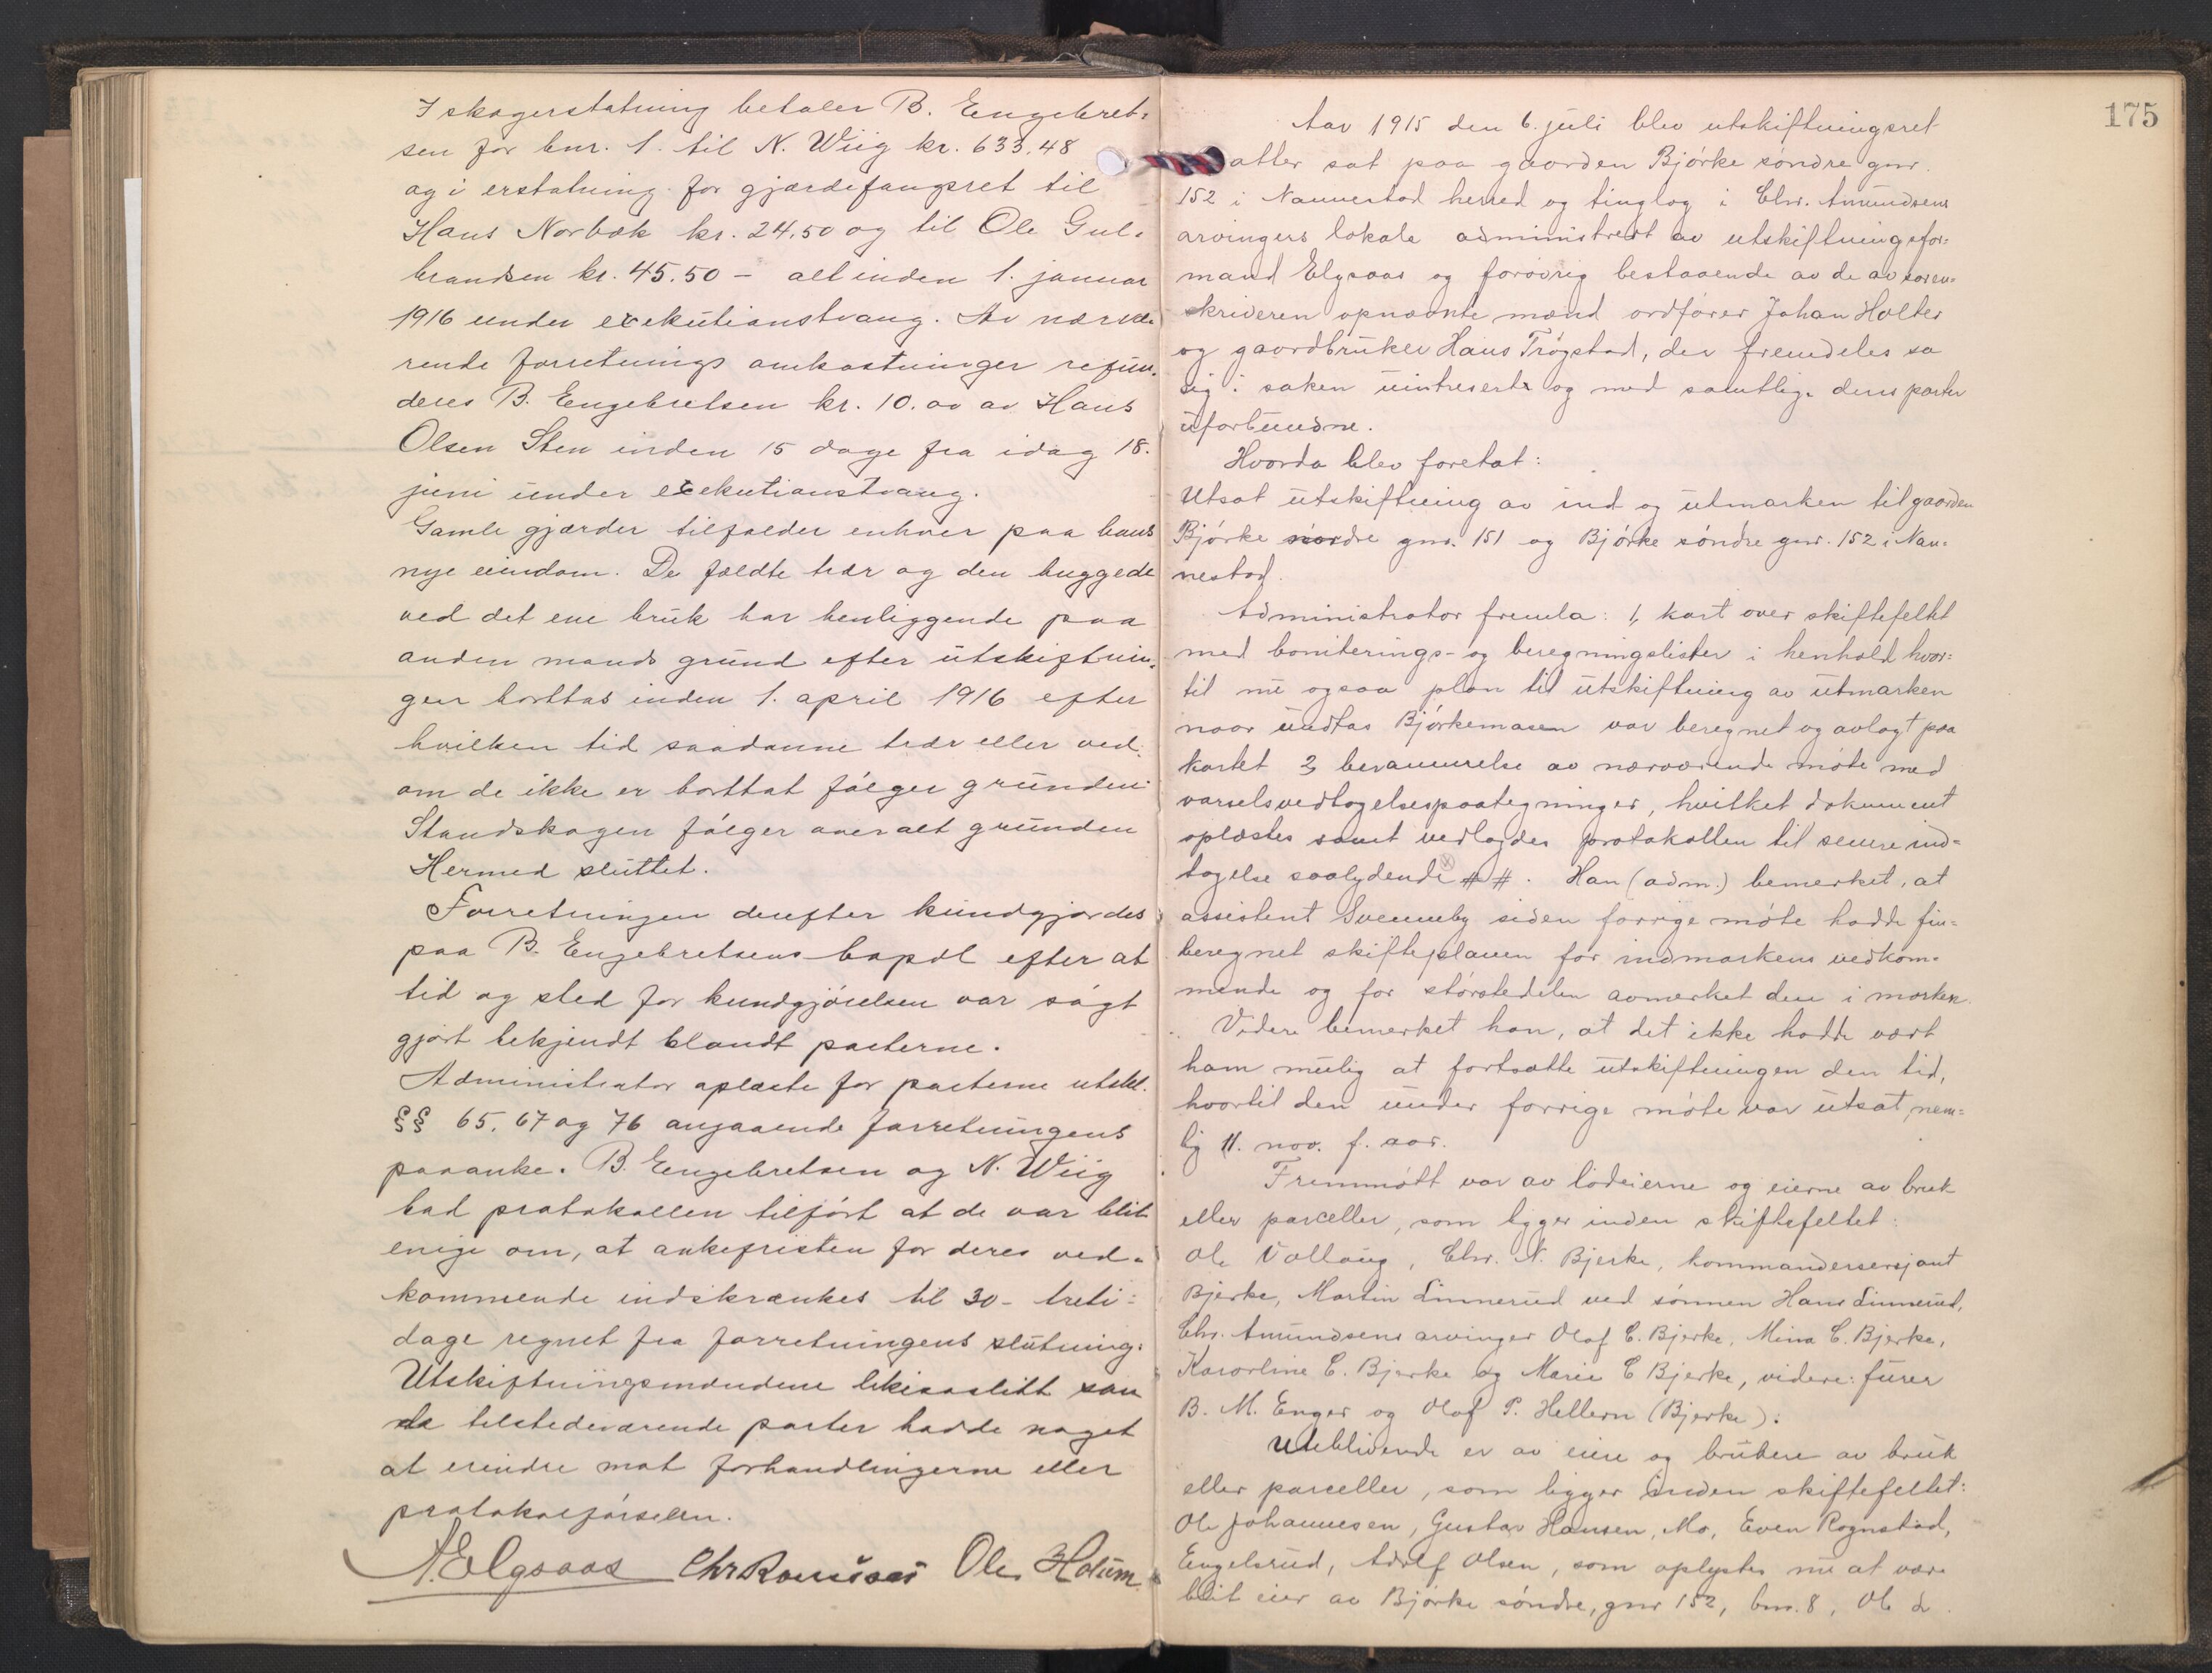 I skogerstatning betaler B. Engebret-
sen for bnr. 1. til N. Wiig kr. 633.48
og i erstatning for gjærdefangsret til
Hans Norbæk kr. 24.50 og til Ole Gul-
brandsen kr. 45.50 – alt inden 1. januar
1916 under exekutionstvang. Av nærvæ-
rende forretnings omkostninger refun-
deres B. Engebretsen kr. 10.00 av Hans
Olsen Sten inden 15 dage fra idag 18.
juni under exekutionstvang.
Gamle gjærder tilfalder enhver paa hans
nye eiendom. De fældte trær og den huggede
ved det ene bruk har henliggende paa
anden mands grund efter utskiftnin-
gen borttas inden 1. april 1916 efter
hvilken tid saadanne trær eller ved
om de ikke er borttat følger grunden.
Standskogen følger overalt grunden
Hermed sluttet.
Forretningen derefter kundgjordes
paa B. Engebretsens bopæl efter at
tid og sted for kundgjørelsen var søgt
gjort bekjendt blandt parterne.
Administrator oplæste for parterne utskl.
§§ 65, 67 og 76 angaaende forretningens
paaanke. B. Engebretsen og N. Wiig
bad protokollen tilført at de var blit
enige om, at ankefristen for deres ved-
kommende indskrænkes til 30 – treti –
dage regnet fra forretningens slutning.
Utskiftningsmændene likesaalitt som
de tilstedeværende parter hadde noget
at erindre mot forhandlingerne eller
protokolførselen.
A. Elgsaas Ole Holum
175
Aar 1915 den 6. juli blev utskiftningsret
atter sat paa gaarden Bjørke søndre gnr.
152 i Nannestad herred og tinglag i Chr. Amundsens
arvingers lokale administrert av utskiftningsfor-
mand Elgsaas og forøvrig bestaaende av de av soren-
skriveren opnævnte mænd ordfører Johan Holter
og gaardbruker Hans Trøgstad, der fremdeles sa
sig i saken uintreserte og med samtlige deres parter
uforbundne.
Hvorda blev foretat:
Utsat utskiftning av ind og utmarken til gaarden
Bjørke nordre gnr. 151 og Bjørke søndre gnr. 152 i Nan-
nestad.
Administrator fremla: 1, kart over skiftefeltet
med boniterings- og beregningslister i henhold hvor-
til nu ogsaa plan til utskiftning av utmarken
naar undtas Bjørkemasen var beregnet og avlagt paa
kartet 2, berammelse av nærværende møte med
varselsvedtagelsespaategninger, hvilket dokument
oplæstes samt vedlagdes protokollen til senere ind-
tagelse saalydende # #. Han (adm.) bemerket, at
assistent Svenneby siden forrige møte hadde fin-
beregnet skifteplanen for indmarkens vedkom-
mende og for størstedelen avmerket den i marken.
Videre bemerket han, at det ikke hadde vært
ham mulig at fortsætte utskiftningen den tid,
hvortil den under forrige møte var utsat, nem-
lig 11. nov. f. aar.
Fremmøtt var av lodeierne og eierne av bruk
eller parceller, som ligger inden skiftefeltet:
Ole Vollaug, Chr. N. Bjerke, kommandersersjant
Bjerke, Martin Linnerud ved sønnen Hans Linnerud,
Chr. Amundsens arvinger Olaf C. Bjerke, Mina C. Bjerke,
Karorline C. Bjerke og Marie C Bjerke, videre: furer
B. M. Enger og Olaf P. Hellern (Bjerke).
Uteblivende er av eiere og brukere av bruk
eller parceller, som ligger inden skiftefeltet:
Ole Johannesen, Gustav Hansen, Mo, Even Rognstad,
Engelsrud, Adolf Olsen, som oplystes nu at være
blit eier av Bjørke søndre, gnr 152, bnr. 8, Ole